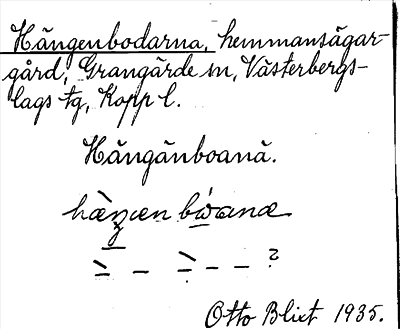 Hängenbodarna, hemmansägar-
gård, Grangärde sn, Västerbergs-
lags tg, Kopp l.
Hängänboanä.
hæ̀ŋæn bω̇anæ
– – – – – ?
Otto Blixt 1935.